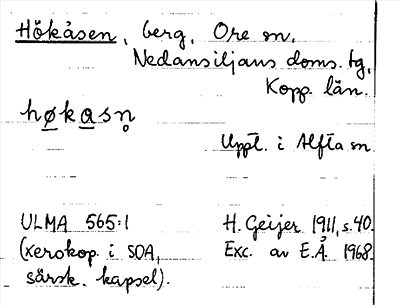 Hökåsen, berg, Ore sn,
Nedansiljans doms. tg,
Kopp. län.
høkasn̥
Uppt. i Alfta sn
ULMA 565:1
(xerokop. i SOA,
särsk. kapsel).
H. Geijer 1911, s. 40.
Exc. av E.Å. 1968.